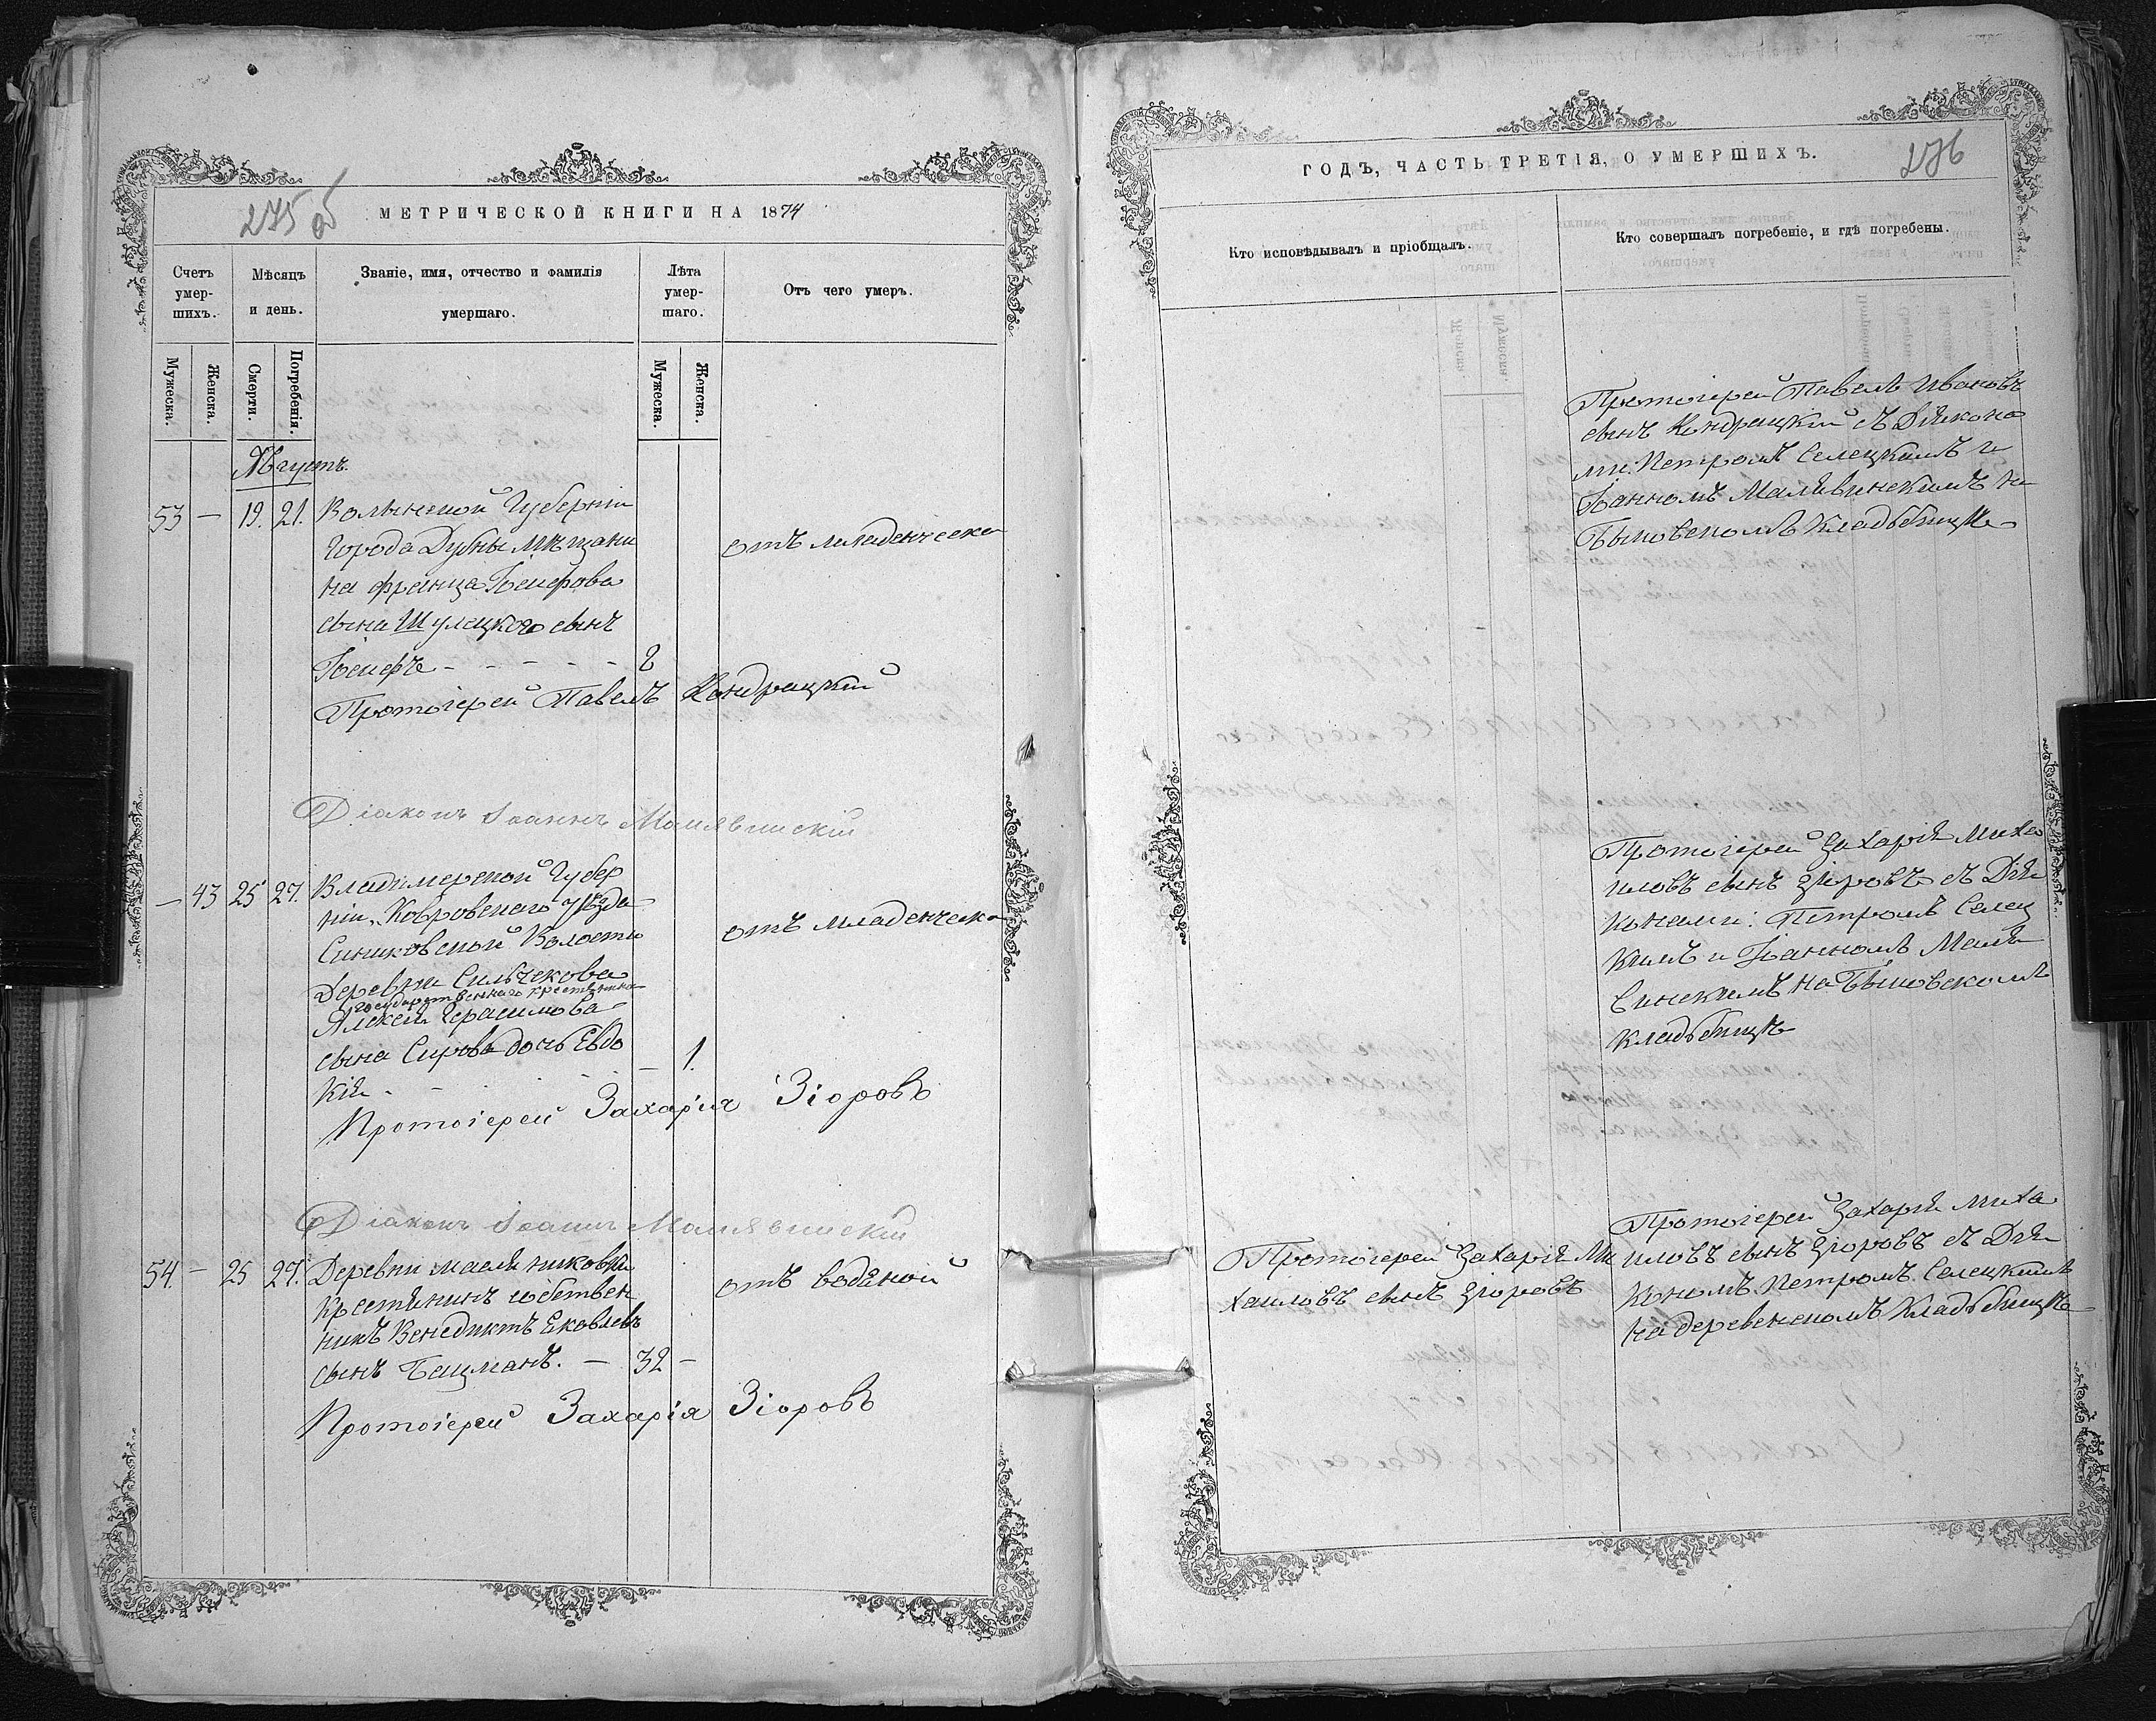 275 об
МЕТРИЧЕСКОЙ КНИГИ НА 1874
Счетъ умер-шихъ.
Мѣсяцъ и день.
Званіе, имя, отчество и фамилія умершаго.
Лѣта умер-шаго.
Отъ чего умеръ.
Мужеска.
Женска.
Смерти.
Погребенія.
Мужеска.
Женска.
Августъ.
53 — 19. 21. Волынской Губерніи
Города Дубны мѣщани
на Франца Іосифова
отъ младенческа
сына Шулецкого сынъ
Іосифъ - - - - - 2
Протоіерей Павелъ Кондрацкій
Діаконъ Іоаннъ Малявинскій
— 43 25 27. Владимерской Губер
ніи, Ковровскаго уѣзда
Синиковской Волости
отъ младенческа
Деревни Сильчекова
государственнаго крестьянина
Алексѣя Герасимова
сына Сирова дочь Евдо
кія - - — 1.
Протоіерей Захарія Зіоровъ
Діаконъ Іоаннъ Малявинскій
54 — 25 27. Деревни Масляниковки
крестянинъ собствен
отъ водяной
никъ Венедиктъ Яковлевъ
сынъ Бацманъ. — 32 —
Протоіерей Захарія Зіоровъ
ГОДЪ, ЧАСТЬ ТРЕТІЯ, О УМЕРШИХЪ.
276
Кто исповѣдывалъ и пріобщалъ.
Кто совершалъ погребеніе, и гдѣ погребены.
Протоіерей Павелъ Ивановъ
сынъ Кондрацкій съ Діякона
ми: Петромъ Селецкимъ и
Іоанномъ Малявинскимъ на
Быковскомъ Кладбищѣ
Протоіерей Захарія Миха
иловъ сынъ Зіоровъ съ Дія
конами: Петромъ Селец
кимъ и Іоанномъ Маля
винскимъ на Быковскомъ
Кладбищѣ
Протоіерей Захарія Ми
хаиловъ сынъ Зіоровъ
Протоіерей Захарія Миха
иловъ сынъ Зіоровъ съ Дія
кономъ Петромъ Селецкимъ
на деревенскомъ Кладбищѣ